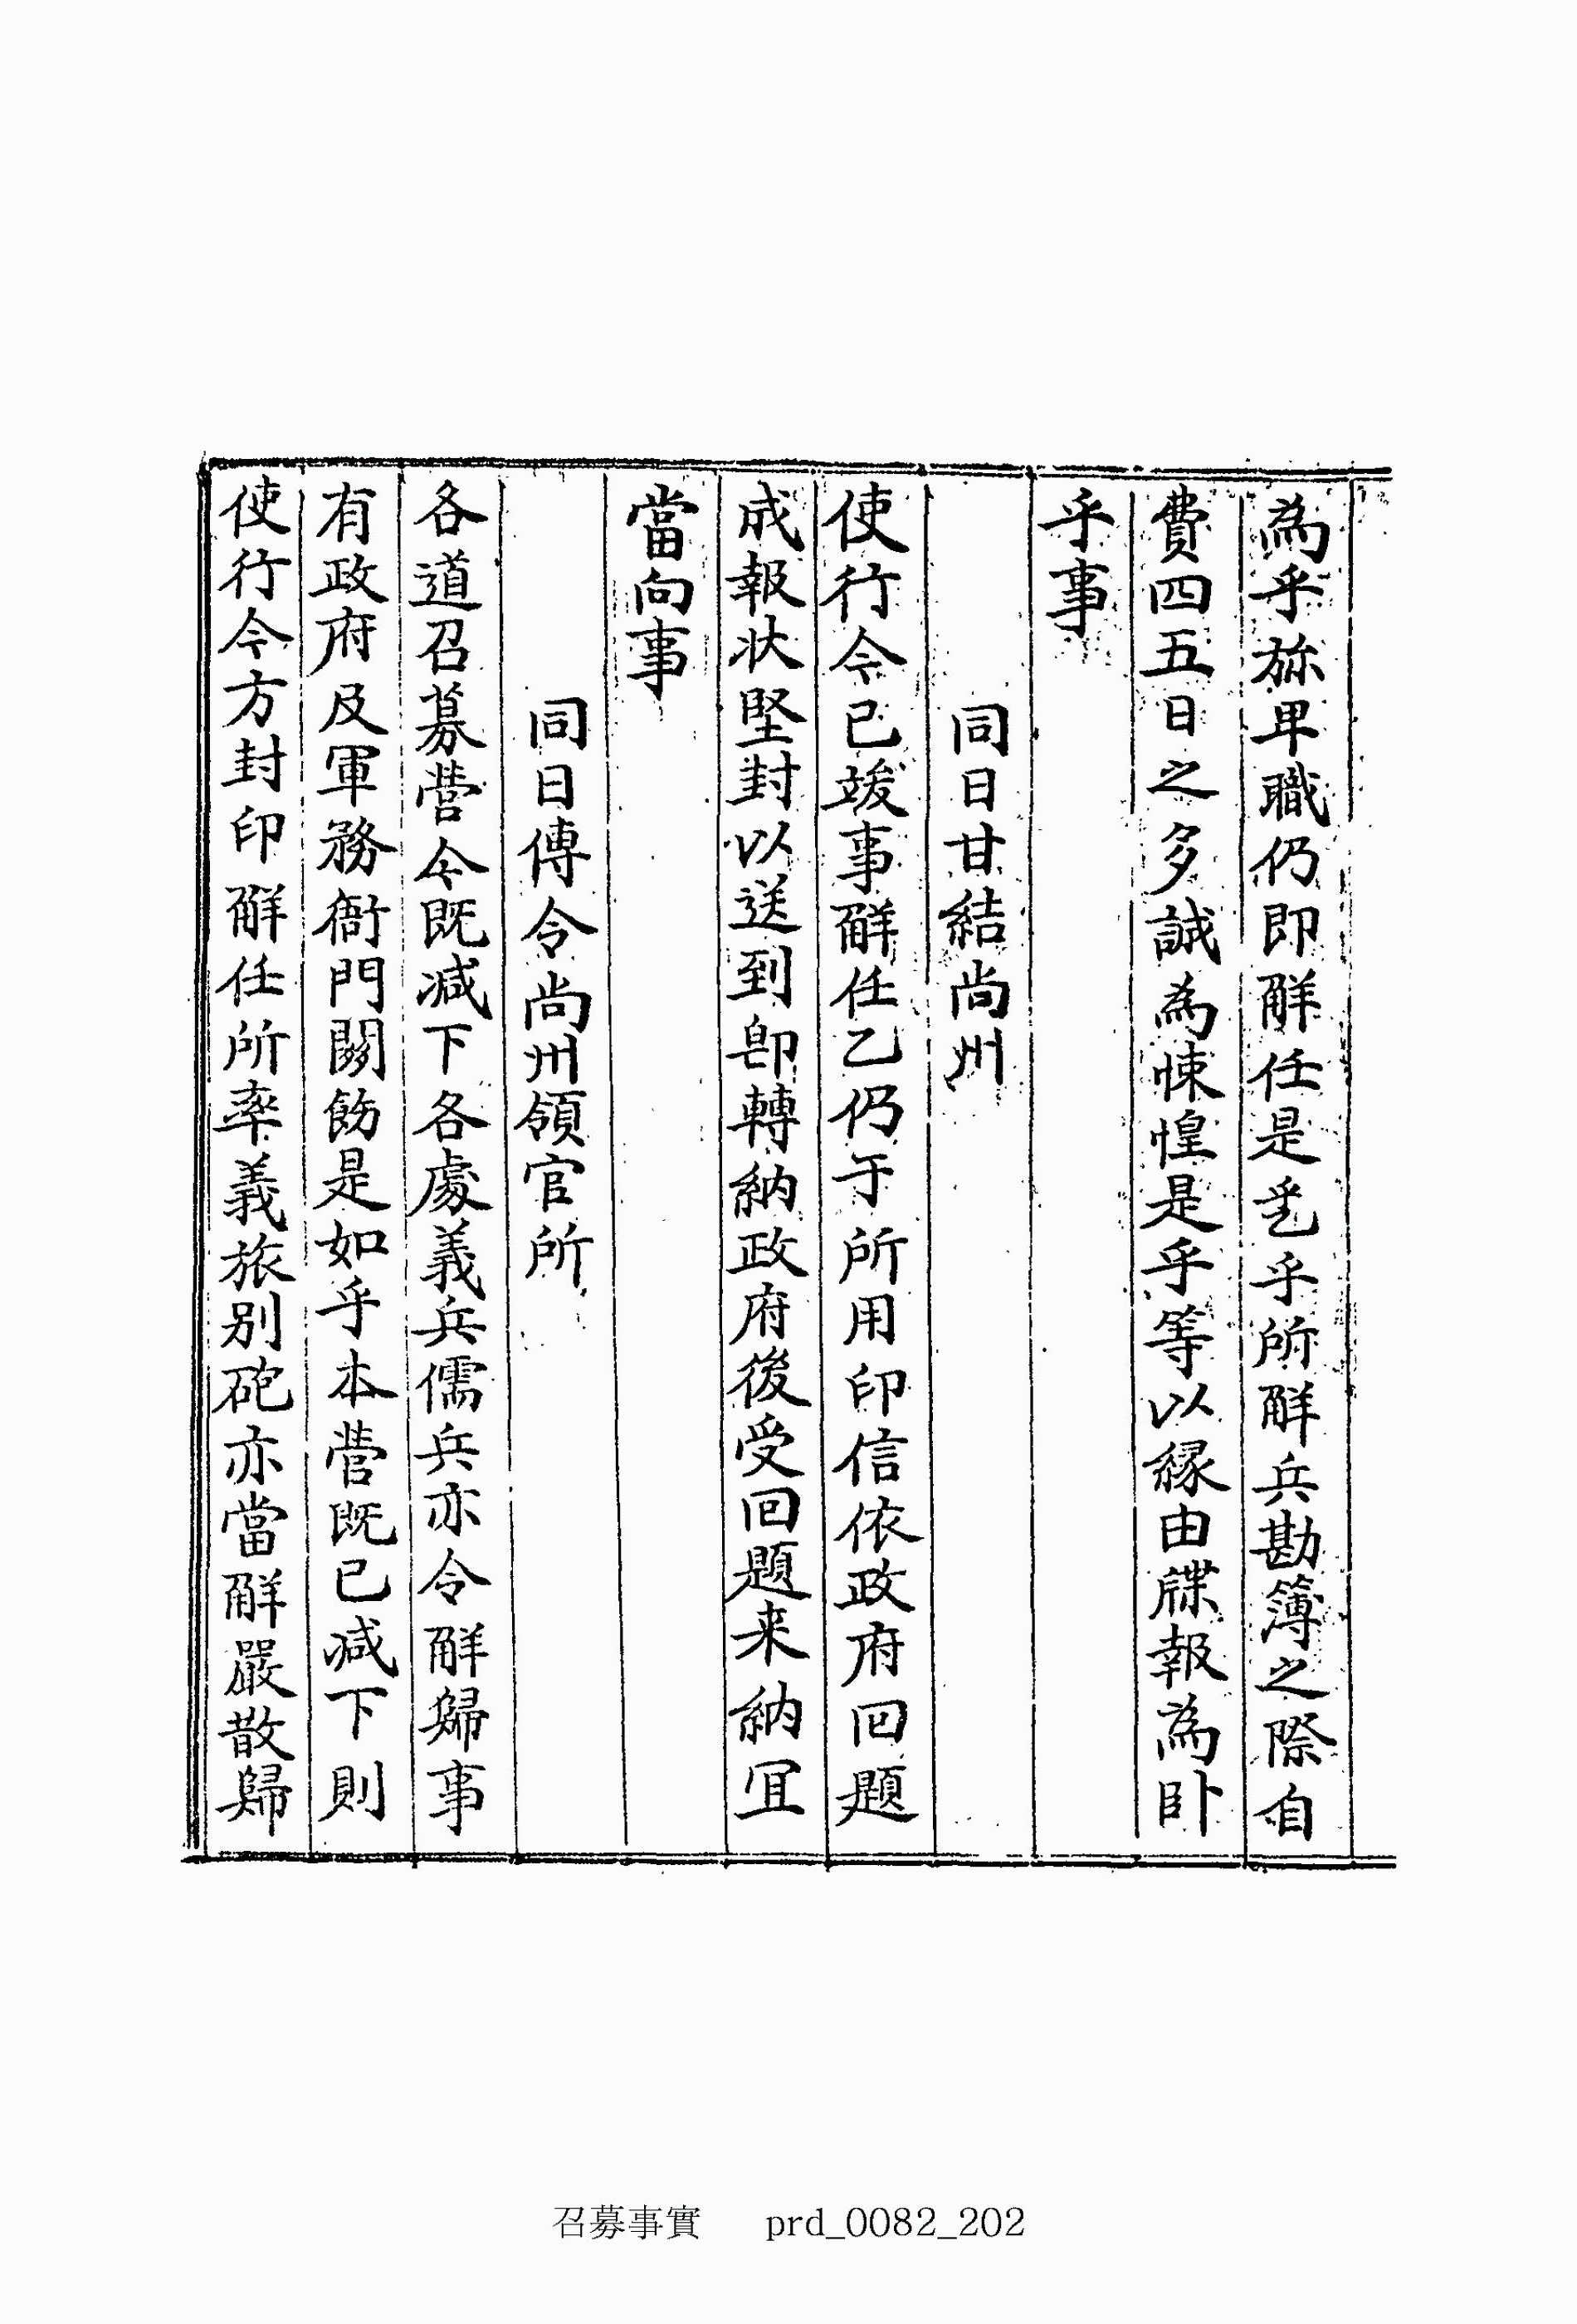 為乎旀卑職仍卽解任是乯乎所解兵勘簿之際自
費四五日之多誠為悚惶是乎等以緣由牒報為臥
乎事
同日甘結尙州
使行今已竣事解任乙仍于所用印信依政府回題
成報狀堅封以送到卽轉納政府後受回題来納冝
當向事
同日傳令尙州領官所
各道召募營今既减下各處義兵儒兵亦令解歸事
有政府及軍務衙門關飭是如乎本營既已减下則
使行今方封印解任所率義旅别砲亦當解嚴散歸
召募事實 prd_0082_202